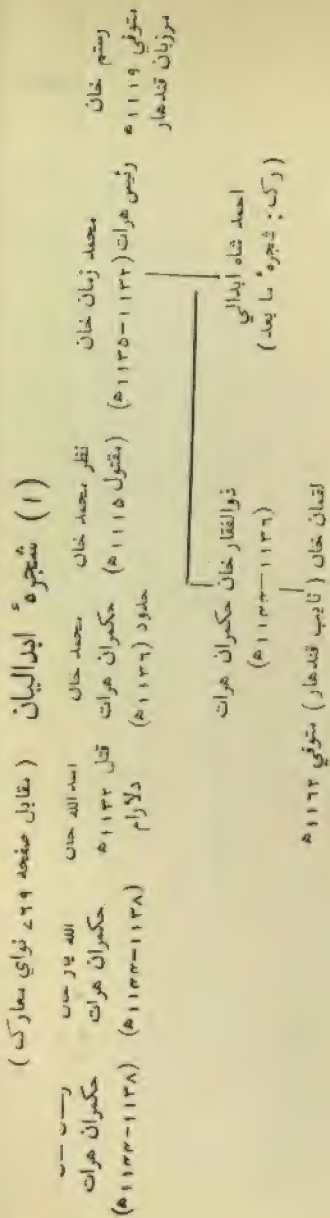 (۱) شجرهٔ ابدالیان (مقابل صفحه ۷۶۹ نوای معارک)
رستم خان
متوفی ۱۱۱۹ھ
مرزبان قندھار
محمد زمان خان
رئیس ھرات (۱۱۳۲-۱۱۳۵ھ)
نظر محمد خان
(مقتول ۱۱۱۵ھ)
محمد خان
حکمران ھرات
حدود (۱۱۳۶ھ)
اسد الله خان
قتل ۱۱۳۲ھ
دلارام
الله یار خان
حکمران ھرات
(۱۱۳۸-۱۱۴۴ھ)
حکمران ھرات
(۱۱۳۸-۱۱۴۴ھ)
احمد شاه ابدالي
(رک: شجرهٔ ما بعد)
ذوالفقار خان حکمران ھرات
(۱۱۳۶-۱۱۴۴ھ)
لقمان خان (نایب قندھار) متوفی ۱۱۶۲ھ